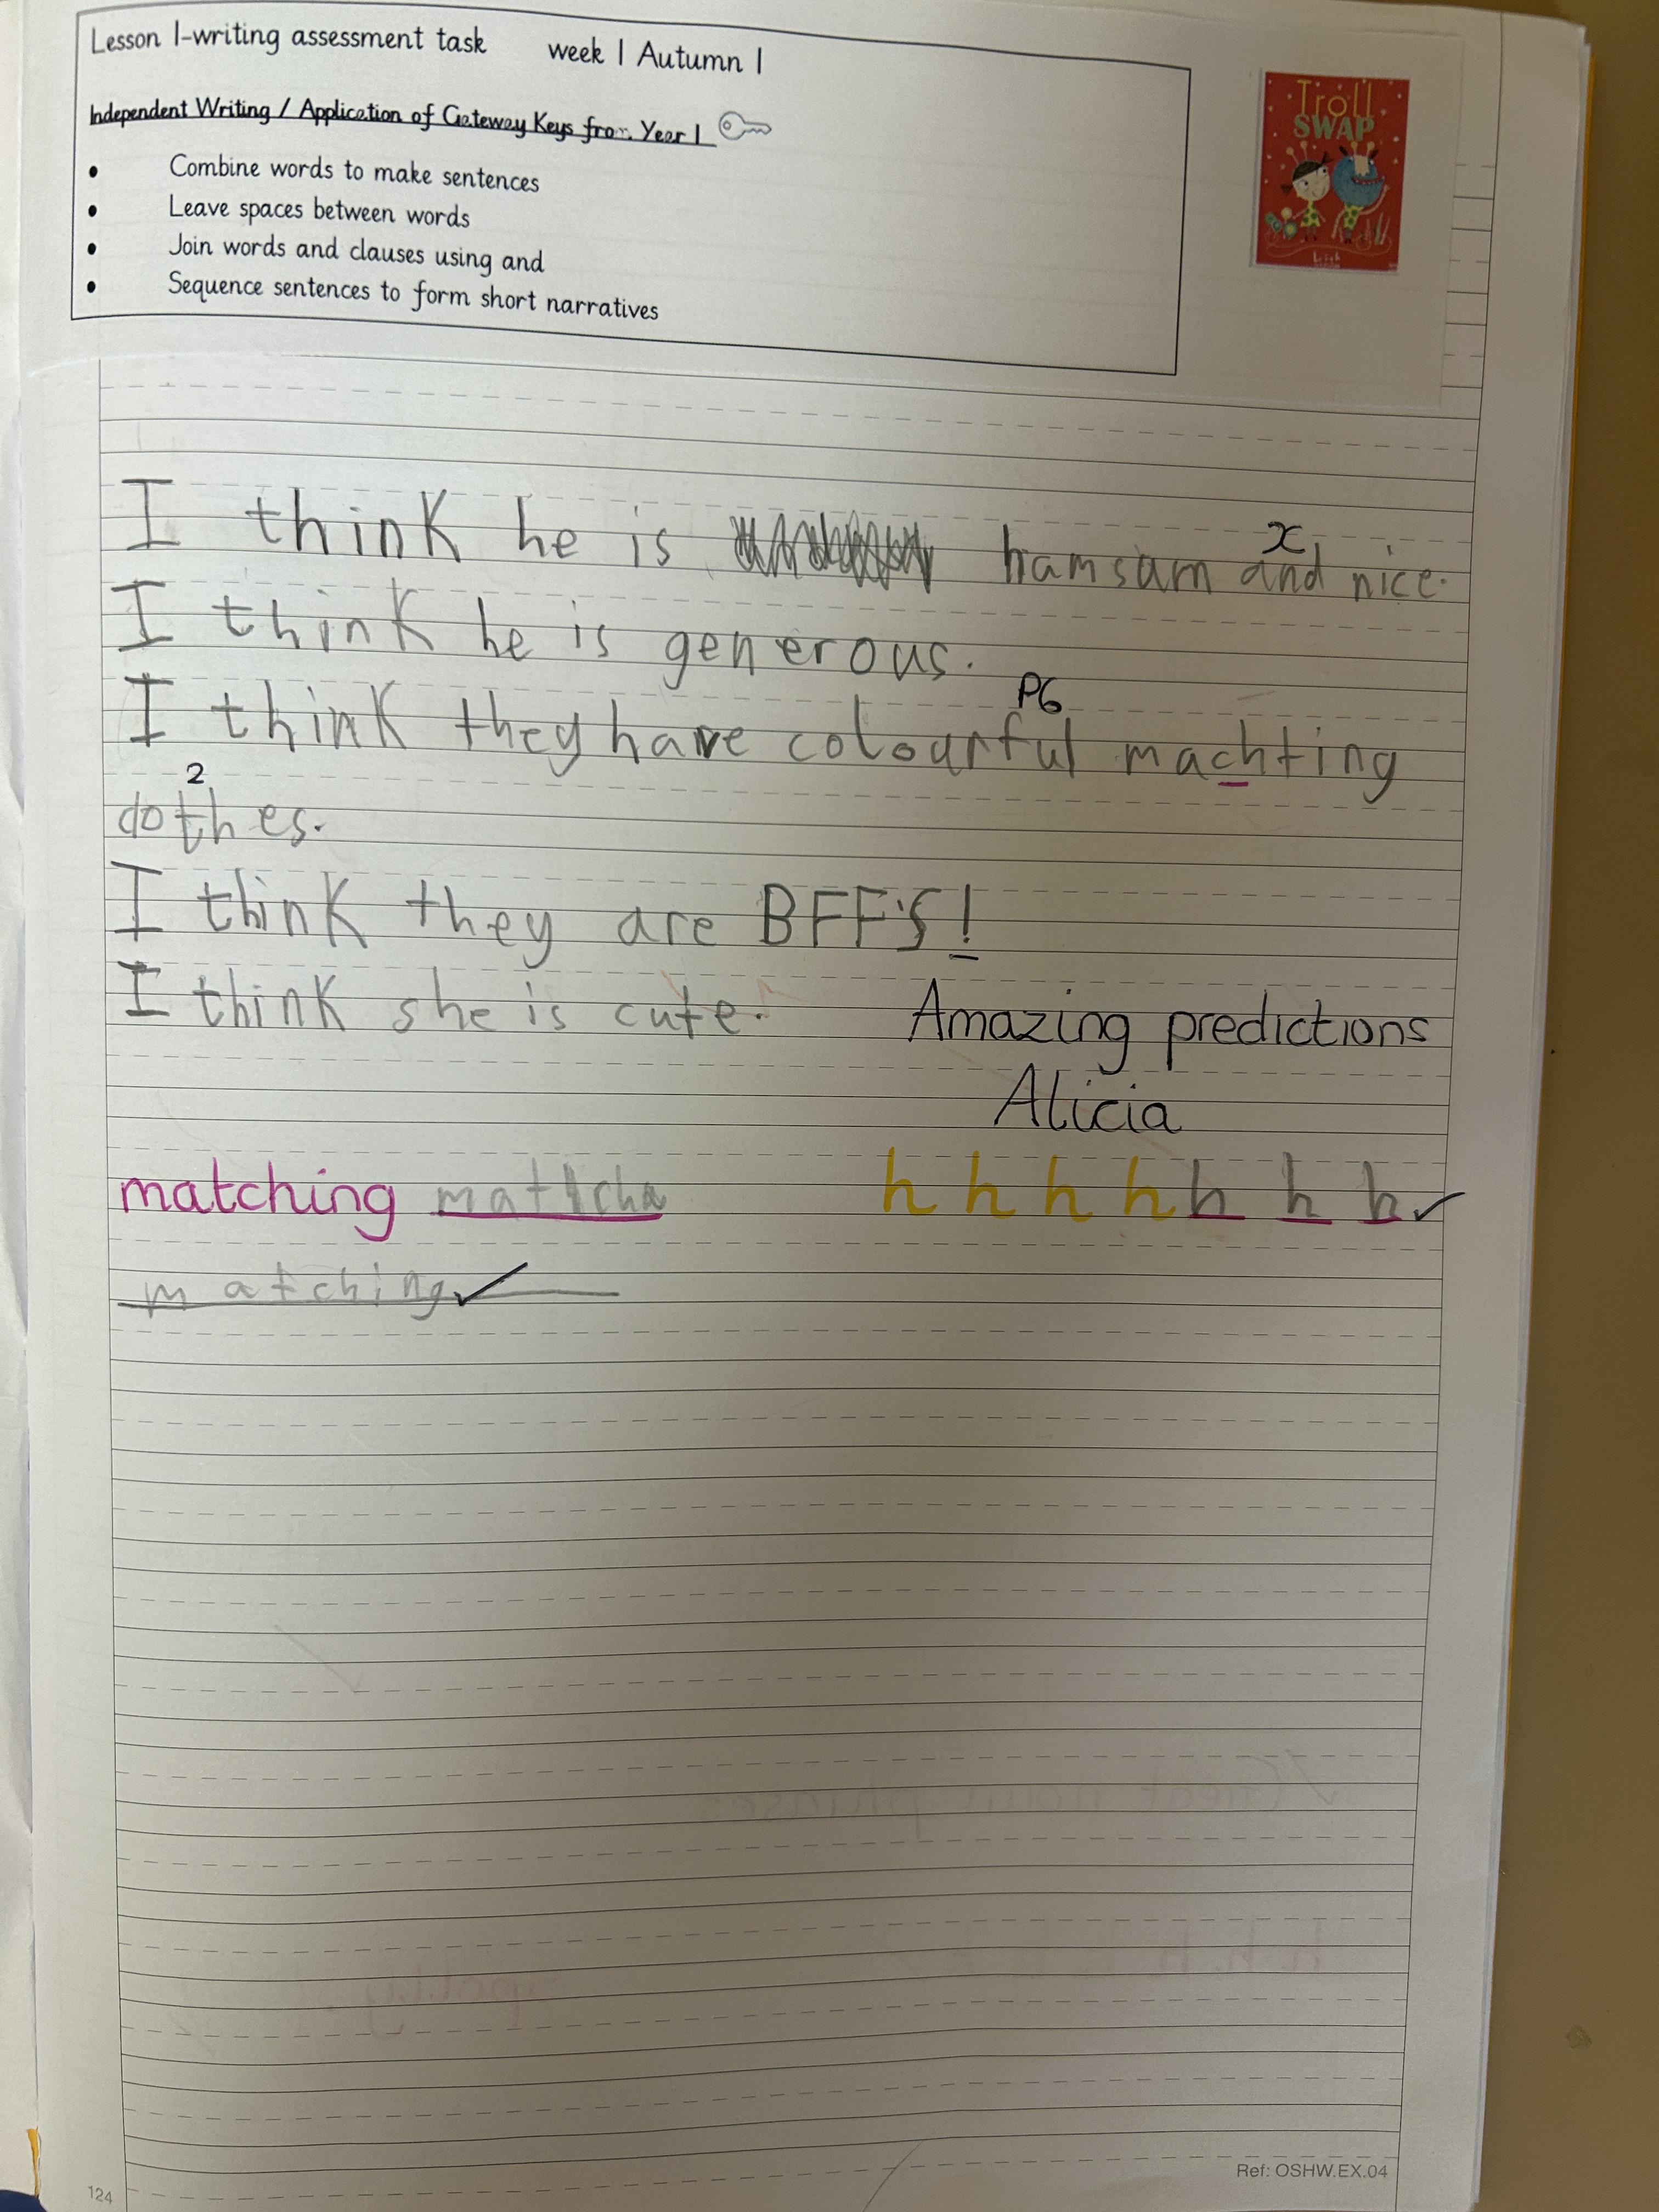 Lesson 1-writing assessment task week 1 Autumn 1
Independent Writing / Application of Gateway Keys from Year 1
• Combine words to make sentences
• Leave spaces between words
• Join words and clauses using and
• Sequence sentences to form short narratives
Troll
SWAP
x
I think he is hamsam and nice.
I think he is generous.
PG
I think they have colourful machting
2
clothes.
I think they are BFF'S!
I think she is cute.
Amazing predictions
Alicia
matching h h h h h h h ✓
matching ✓
Ref: OSHW.EX.04
124